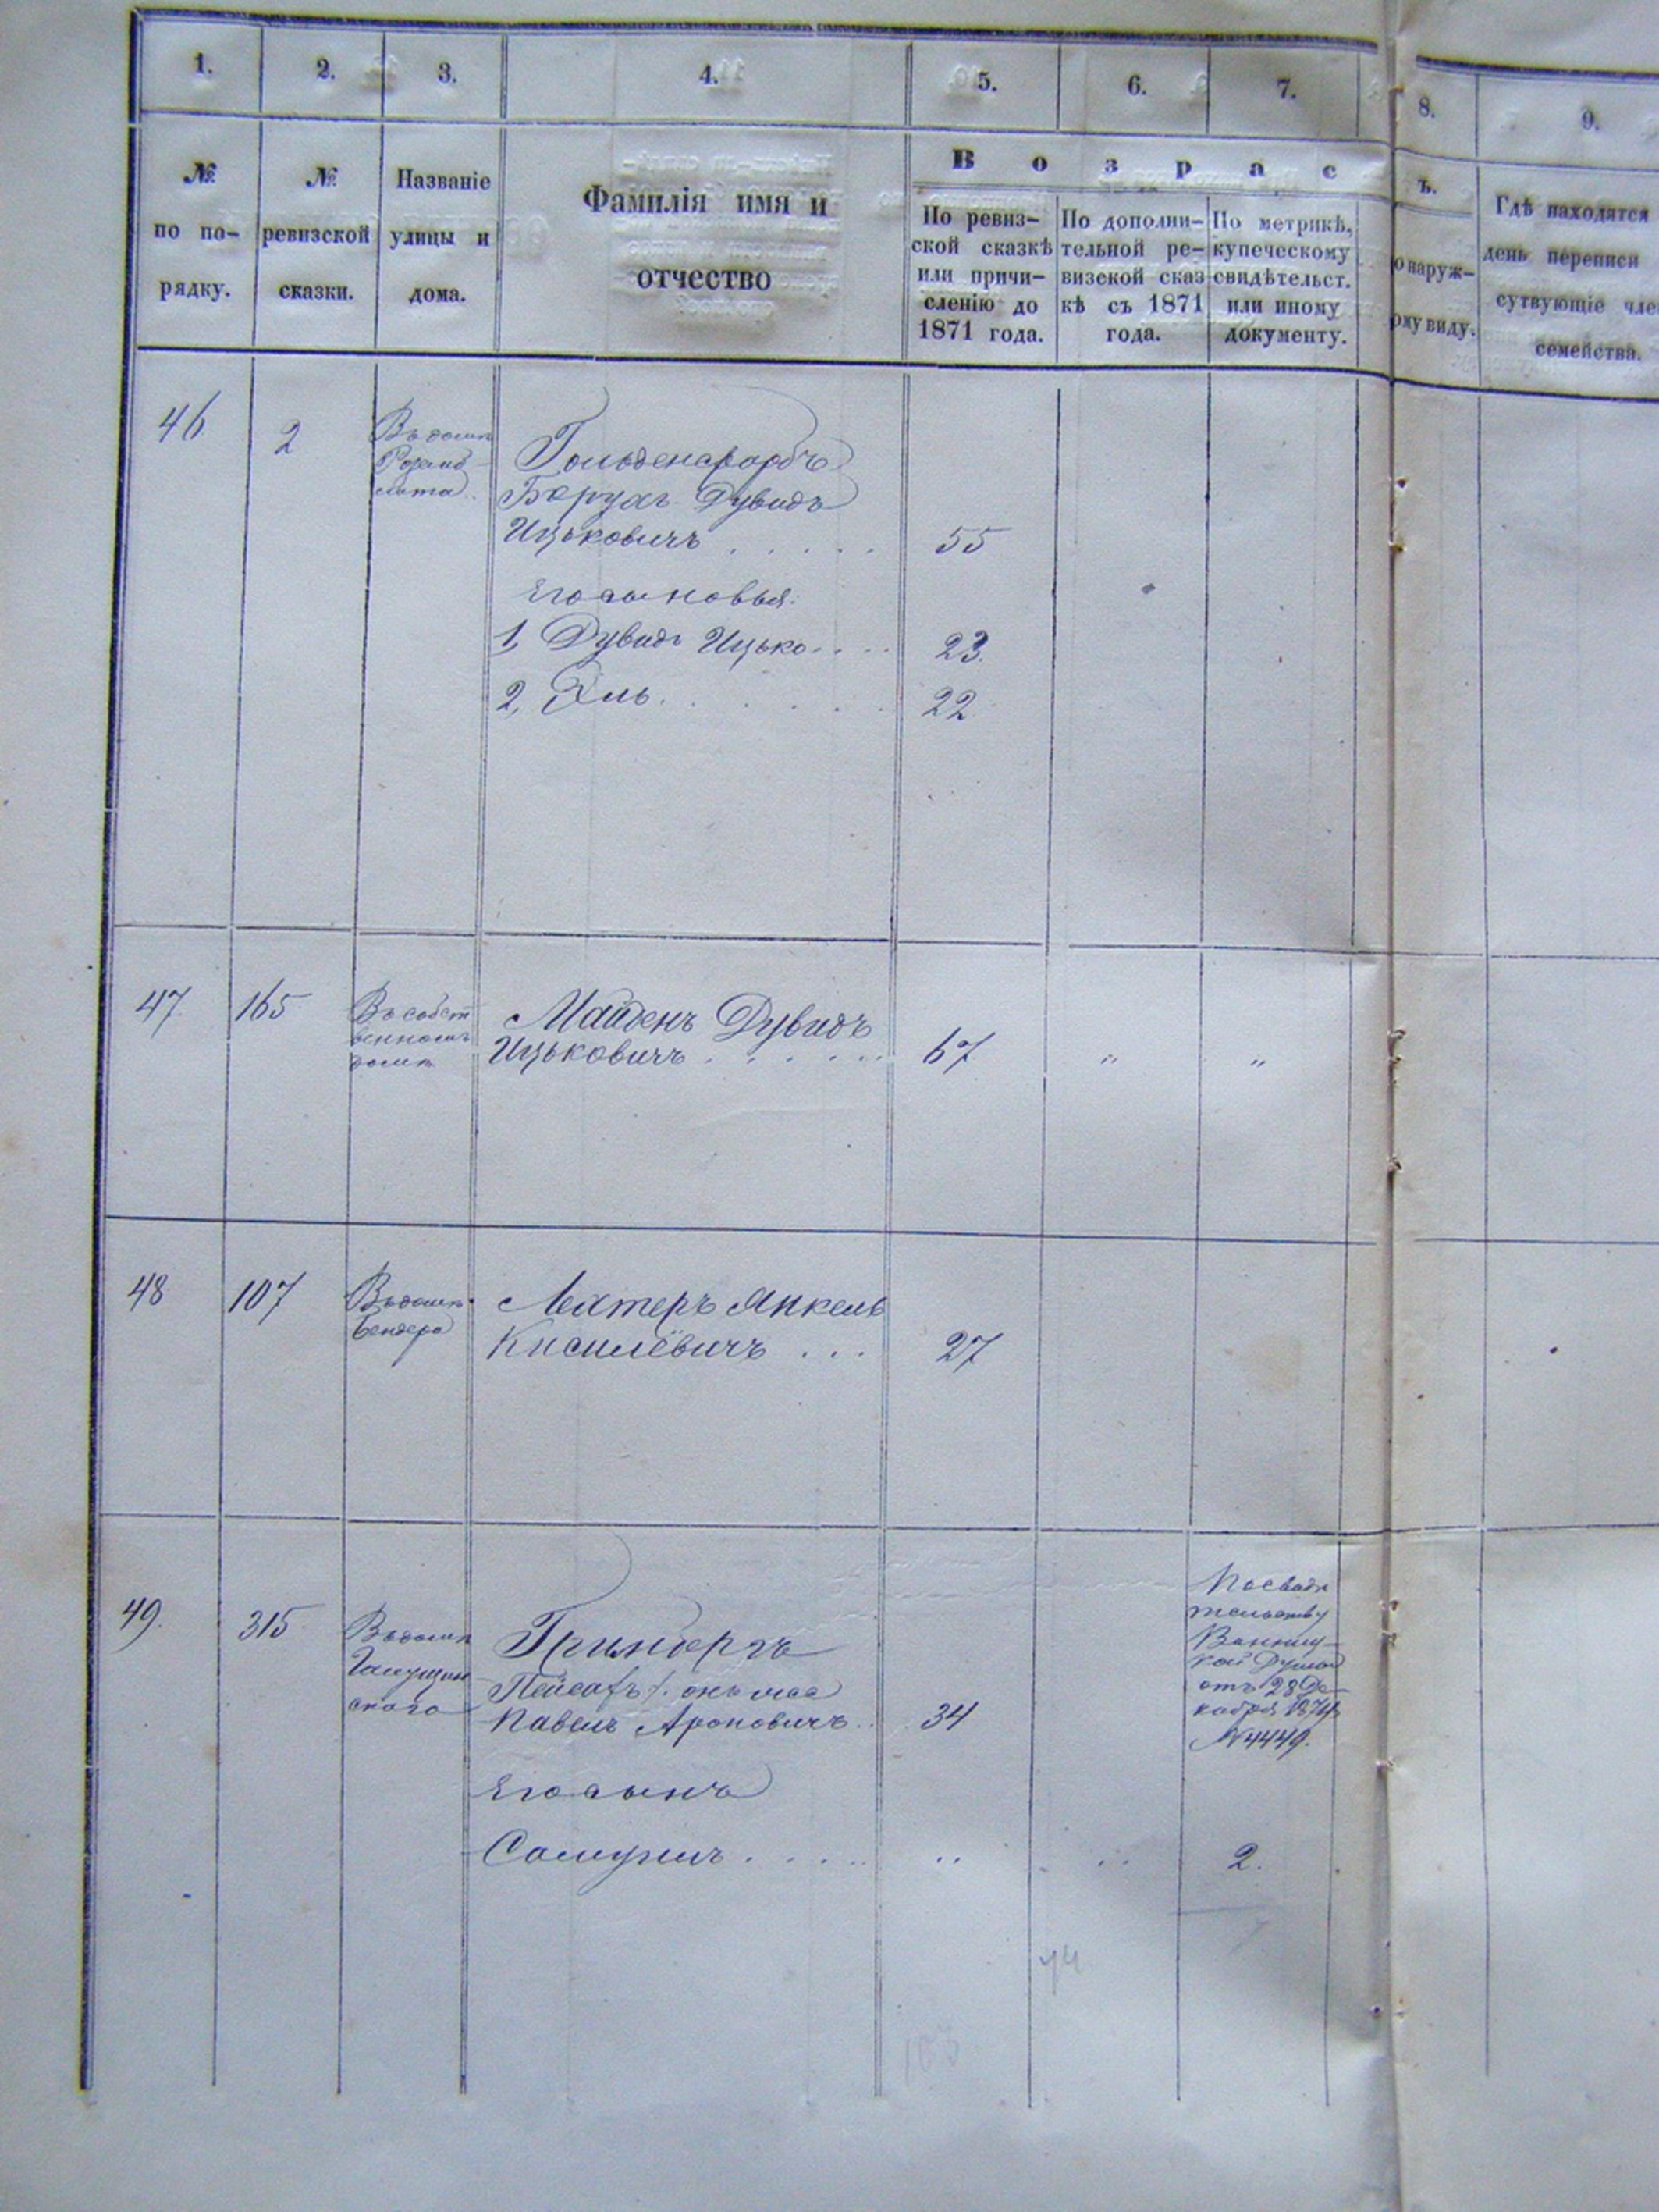 1. 2. 3. 4. 5. 6. 7. 8. 9.
№ по по- рядку.
№ ревизской сказки.
Названіе улицы и дома.
Фамилія имя и
отчество
В о з р а с
ъ.
По ревиз-
ской сказкѣ
или причи-
сленію до
1871 года.
По дополни-
тельной ре-
визской сказ
кѣ съ 1871
года.
По метрикѣ,
купеческому
свидѣтельст.
или иному
документу.
о наруж-
ому виду.
Гдѣ находятся
день переписи
сутвующіе чле
семейства.
46
2
Въ домѣ
Гольденфарбъ
Борухъ Дувидъ
Ицьковичъ . . . . .
55
Его сыновья:
1, Дувидъ Ицько . . . .
23.
2, Эль . . . . . .
22
47
165
Въ собст
венномъ
домѣ
Майденъ Дувидъ
Ицьковичъ . . . . . .
67
"
"
48
107
Въ домѣ
Бендера
Лехтеръ Янкель
Кисилёвичъ . . .
27
49.
315
Въ домѣ
Гринбергъ
Пейсахъ онъ же
Павелъ Ароновичъ . .
34
По свидѣ
тельству
кой Думы
отъ 28 Де-
кабря 1874
№ 4449.
Его сынъ
Самуилъ . . . . .
"
"
2.
44